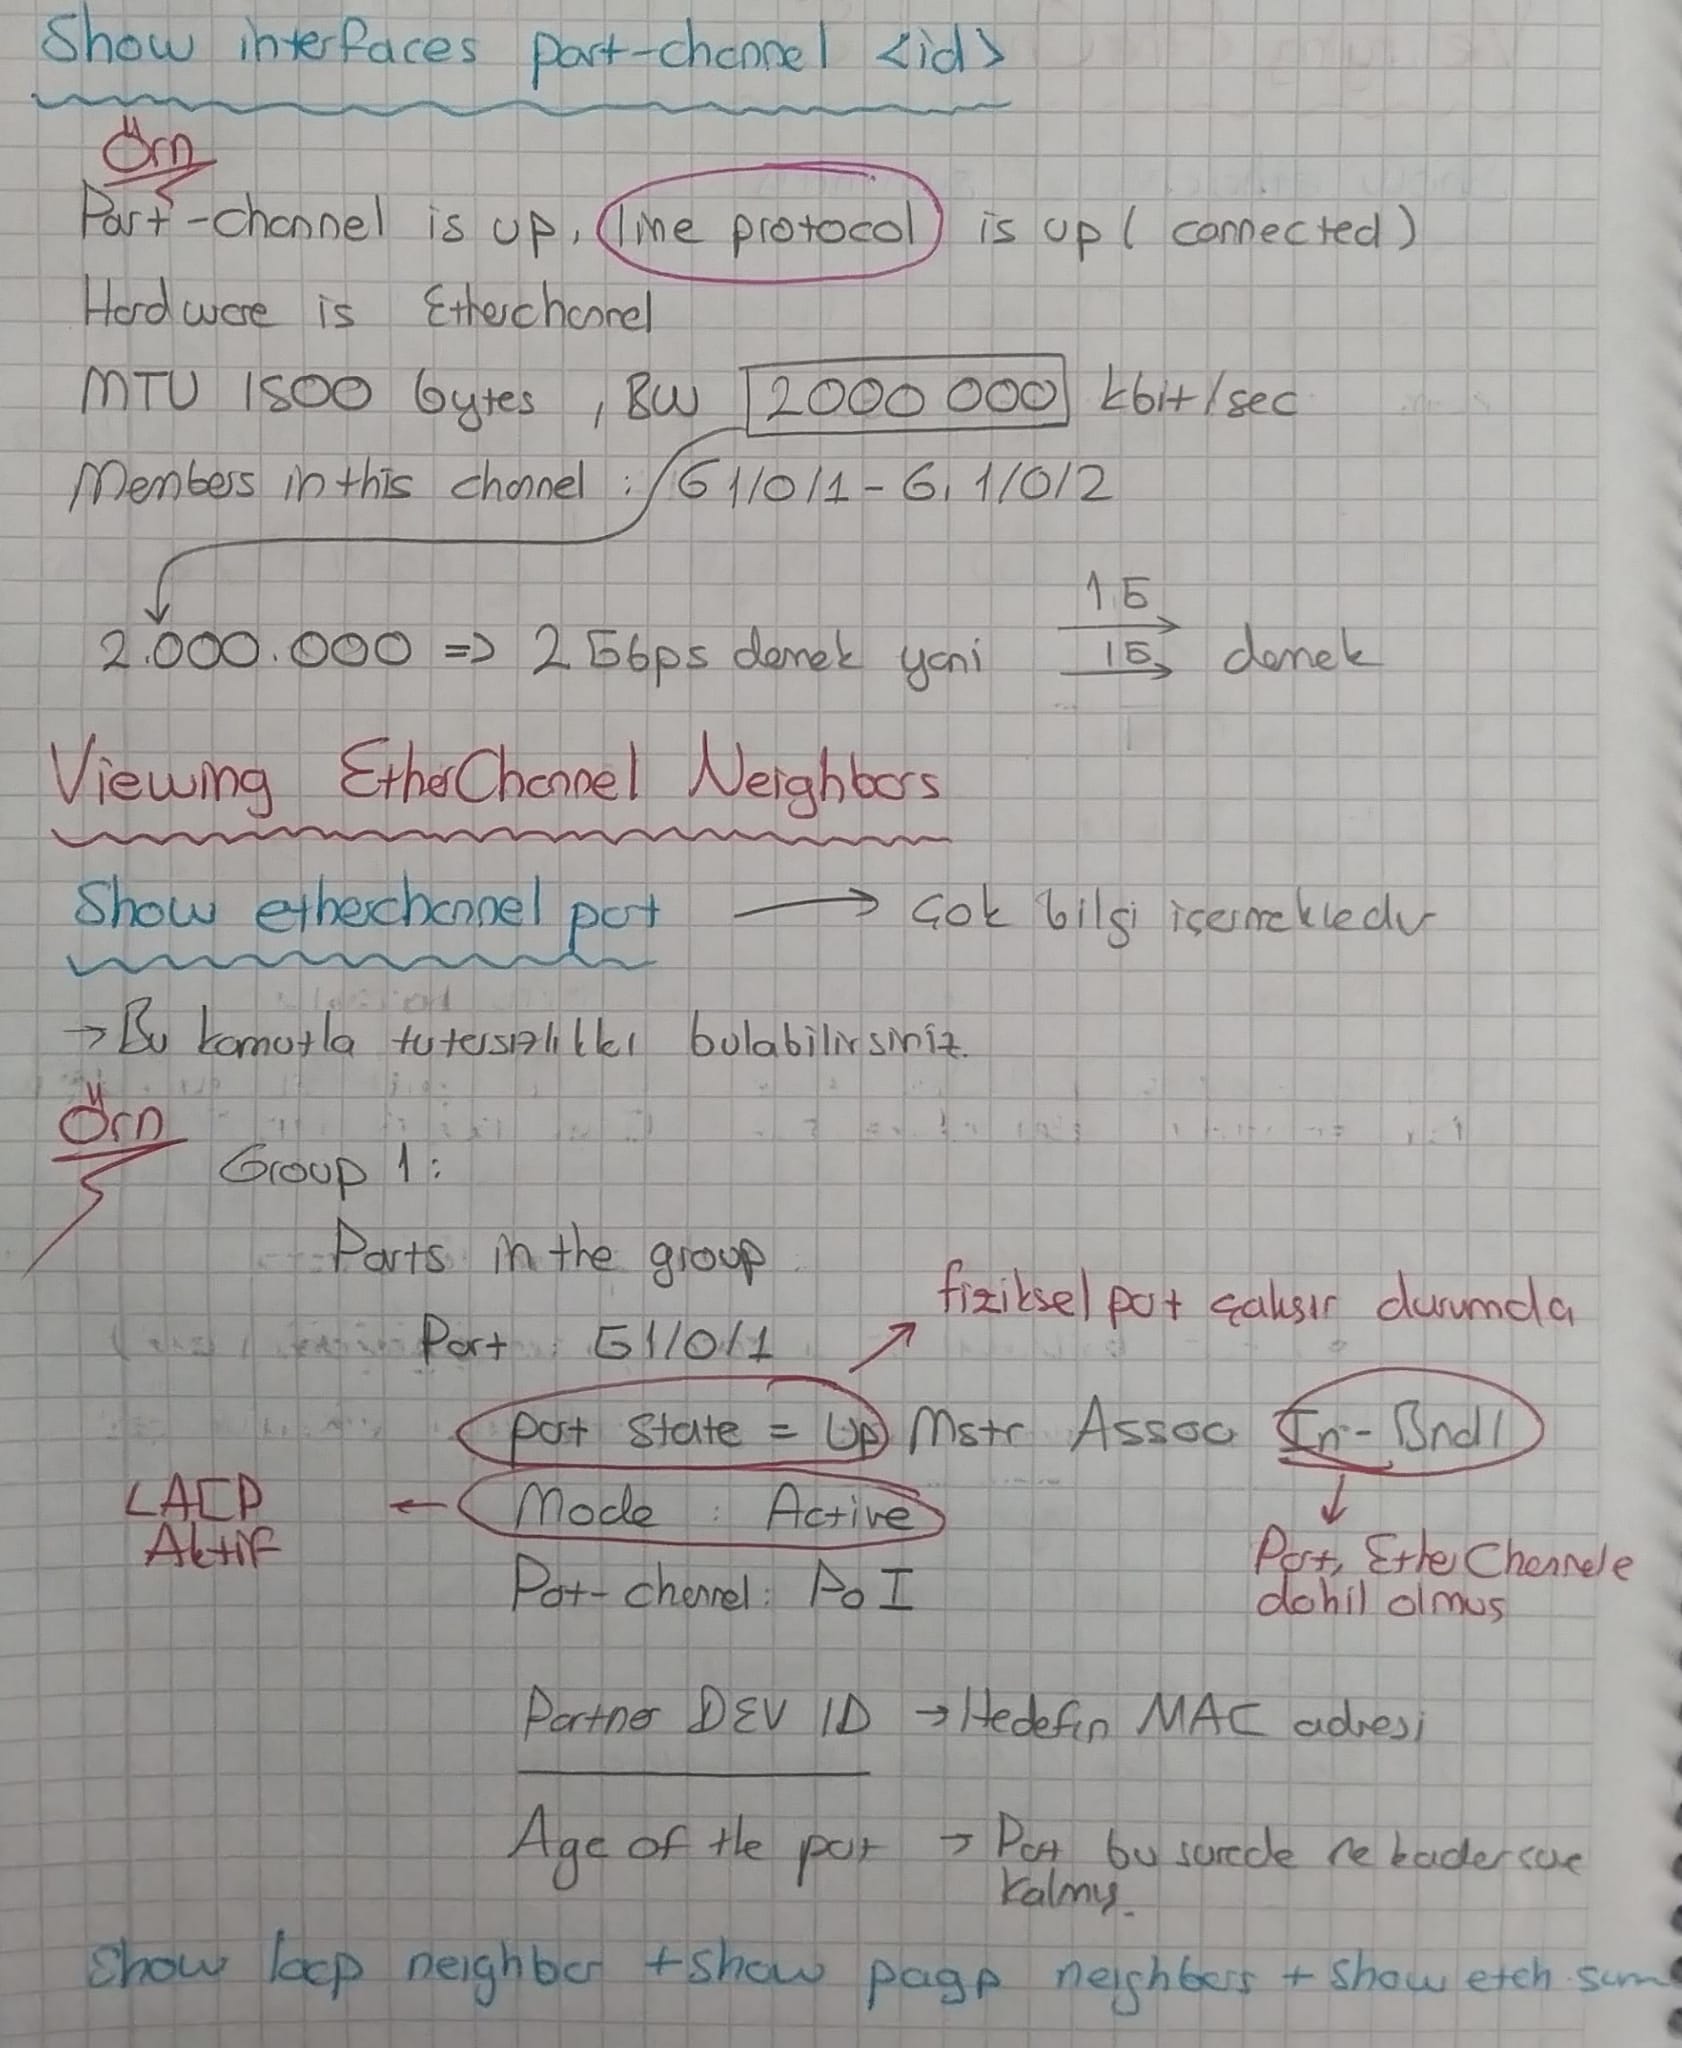 Show interfaces port-channel <id>
Örn
Port-channel is up, line protocol is up ( connected )
Hardware is Etherchannel
MTU 1500 bytes , BW 2000 000 kbit/sec
Members in this channel : G 1/0/1 - G. 1/0/2
2.000.000 => 2 Gbps demek yani 1G 1G demek
Viewing EtherChannel Neighbors
Show etherchannel port → Çok bilgi içermektedir
→ Bu komutla tutarsızlıkları bulabilirsiniz.
Örn
Group 1 :
Ports in the group
Port : G1/0/1
fiziksel port çalışır durumda
port state = Up Mstr Assoc In-Bndl
LACP Aktif ← Mode : Active
Port, EtherChannele
dahil olmuş
Port-channel : Po I
Partner DEV ID → Hedefin MAC adresi
Age of the port → Port bu surede ne kadar sure
kalmış.
Show lacp neighbor + show pagp neighbors + show etch sum